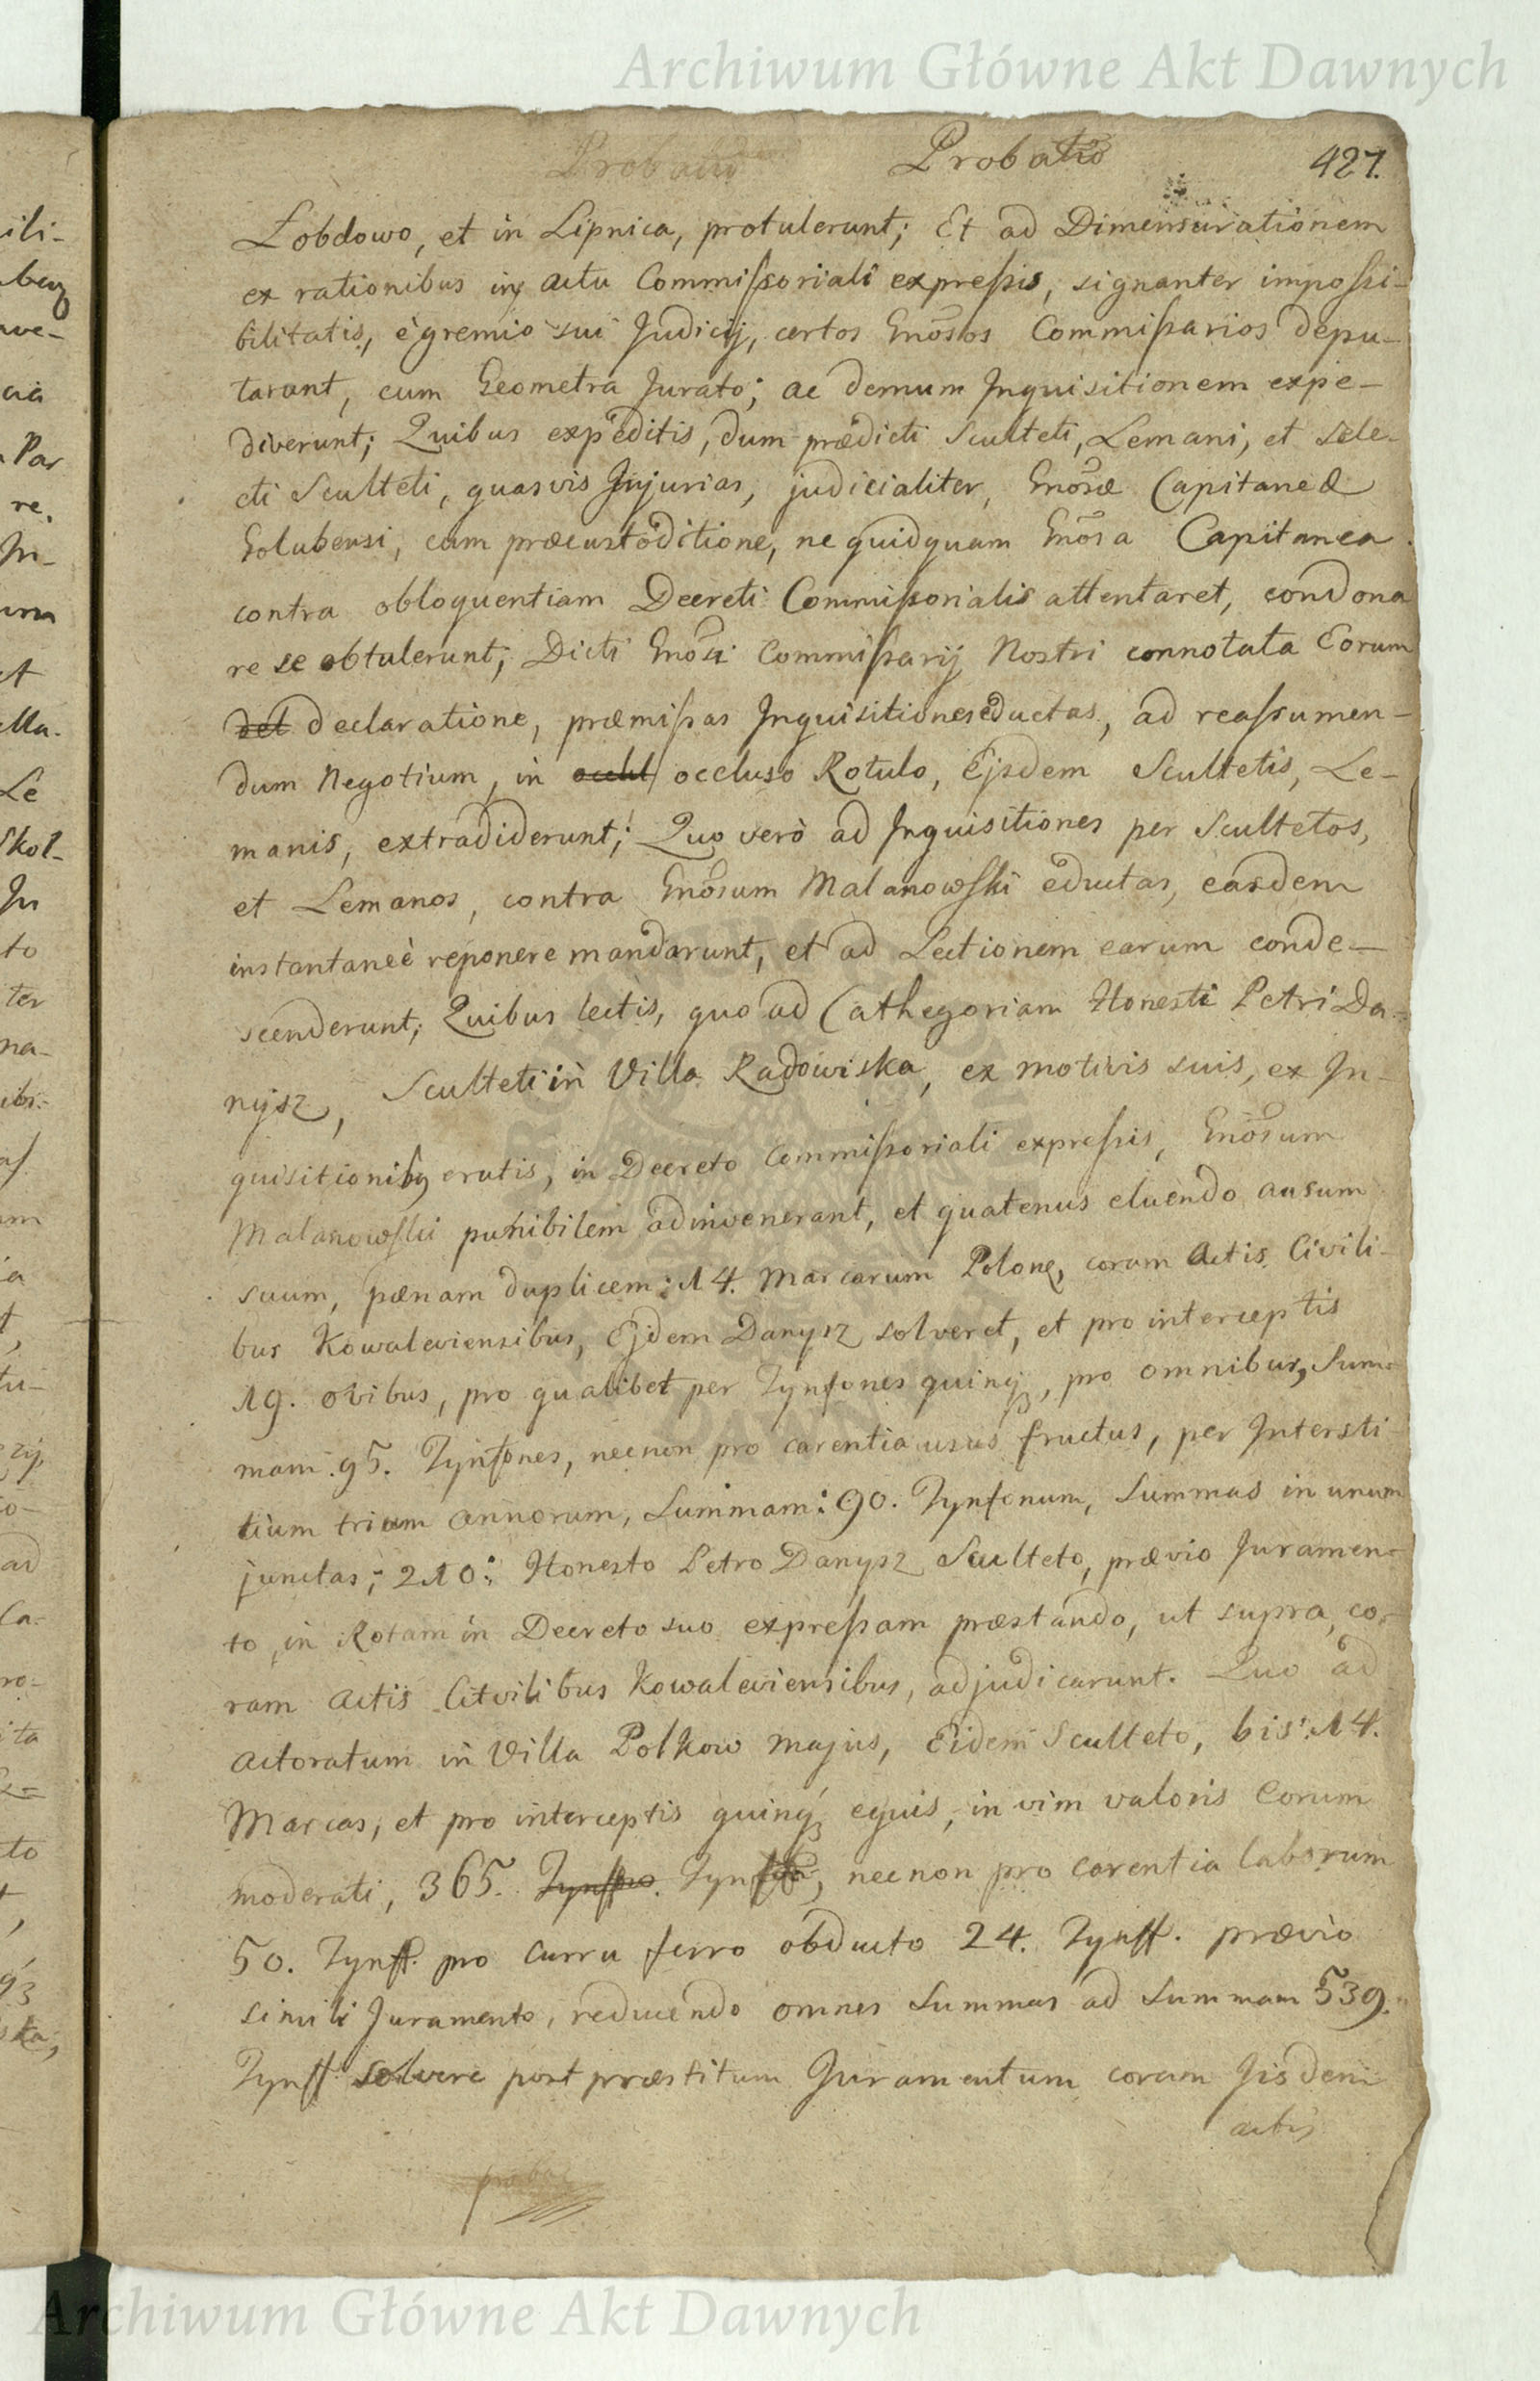 Archiwum Główne Akt Dawnych
Probatio Probatio 427.
Łobdowo, et in Lipnica, protulerunt; Et ad Dimensurationem
ex rationibus in actu Commißoriali expreßis, signanter impoßi-
bilitatis, è gremio sui Judicij, certos Gnosos Commißarios depu-
tarunt, cum Geometra Jurato; ac demum Inquisitionem expe-
diverunt; Quibus expeditis, dum prædicti Sculteti, Lemani, et Sele-
cti Sculteti, quasvis Injurias, judicialiter, Gnosæ Capitaneæ
Golubensi, cum præcustoditione, ne quidquam Gnosa Capitanea
contra obloquentiam Decreti Commißorialis attentaret, condona
re se obtulerunt; Dicti Gnosi Commißarij Nostri connotata Eorum
det declaratione, præmißas Inquisitiones eductas, ad reaßumen-
dum Negotium, in occlu occluso Rotulo, Ejsdem Scultetis, Le-
manis, extradiderunt; Quo verò ad Inquisitiones per Scultetos,
et Lemanos, contra Gnosum Malanowski eductas, easdem
instantaneè reponere mandarunt, et ad Lectionem earum conde-
scenderunt; Quibus lectis, quo ad Cathegoriam Honesti Petri Da-
nysz, Sculteti in Villa Radowiska, ex motivis suis, ex In-
quisitionibꝫ erutis, in Decreto Commißoriali expreßis, Gnosum
Malanowski punibilem adinvenerant, et quatenus eluendo ausum
suum, pænam duplicem: 14. Marcarum Polonę, coram Actis Civili-
bus Kowaleviensibus, Ejdem Danysz solveret, et pro interceptis
19. ovibus, pro qualibet per Tynfones quinqꝫ, pro omnibus, Sum-
mam: 95. Tynfones, necnon pro carentia usus fructus, per Intersti-
tium trium annorum, Summam: 90. Tynfonum, Summas in unum
junctas; 210: Honesto Petro Danysz Sculteto, prævio Juramen-
to, in Rotam in Decreto suo expreßam præstando, ut supra, co-
ram Actis Citvilibus Kowaleviensibus, adjudicarunt. Quo ad
Actoratum in Villa Polkow majus, Eidem Sculteto, bis: 14.
Marcas, et pro interceptis quinqꝫ equis, in vim valoris Eorum
moderati, 365. Tynfo. Tynff, necnon pro carentia laborum
50. Tynff. pro curru ferro obducto 24. Tynff. prævio
simili Juramento, reducendo omnes Summas ad Summam 539.
Tynff solvere post præstitum Juramentum coram Jisdem
actis
Archiwum Główne Akt Dawnych